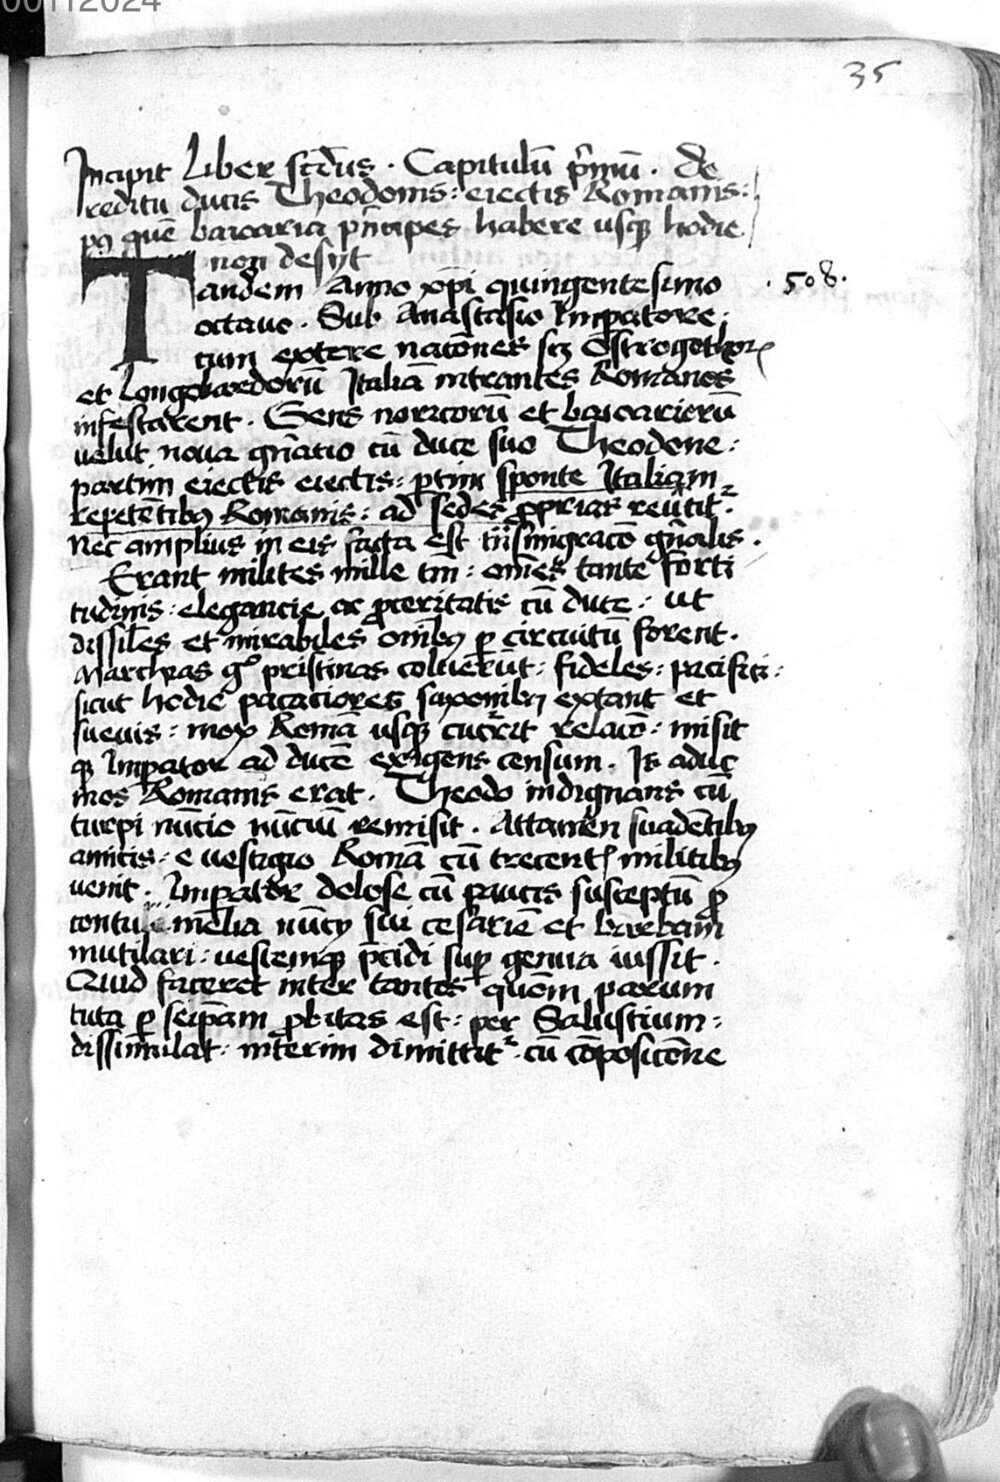 00112024
35
Incipit Liber scd̄us . Capitulū p̄mū . de
reditu ducis Theodonis : eiectis Romanis :
pꝰ quē baioaria pn̄cipes habere usqꝫ hodie
non desyt
Tandem Anno xp̄i quingentesimo
. 508 .
octauo . Sub Anastasio Imp̄atore :
cum extere nac̄ones scꝫ Ostrogothoꝝ
et Longobardorū Italiā intrantes Romanos
infestarent . Gens noricorū et baioariorū
velut noua gn̄atio cū duce suo Theodone :
partim eiectis eiectis : ꝑtim sponte Italiam
repetētibꝰ Romanis : ad sedes ꝓprias reūtitᷣ .
Nec amplius in eis facta est gn̄alis .
Erant milites mille tm̄ : om̄es tante forti
tudinis : elegancie ac ꝓceritatis cū duce : ut
dissil̄es et mirabiles om̄ibꝰ ꝑ circuitū forent .
Marchias gͦ pristinas coluer̄ut : fideles : pacifici :
sicut hodie pacaciores saxonibꝰ extant et
sueuis : mox Romā usqꝫ cucr̄rit relac̄o : misit
qꝫ Imp̄ator ad ducē exigens censum . Is aduc
mos Romanis erat . Theodo indignans cū
turpi nūcio nūciū remisit . Attamen suadētibꝰ
amicis : e vestigio Romā cū trecent militibꝰ
venit . Imp̄ator dolose cū paucis susceptū ꝓ
mēlia nūcy sui cesariē et barbam
mutilari : vestemqꝫ p̄cidi suꝑ genua iussit .
Quid faceret inter tantos quom̄ parum
tuta ꝑ seip̄am ꝓbitas est : per Salustium :
dissimulat : int̄erim dimittitᷣ . cū cōposic̄one